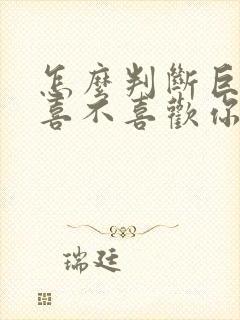 怎麼判斷巨
喜不喜歡你
瑞廷